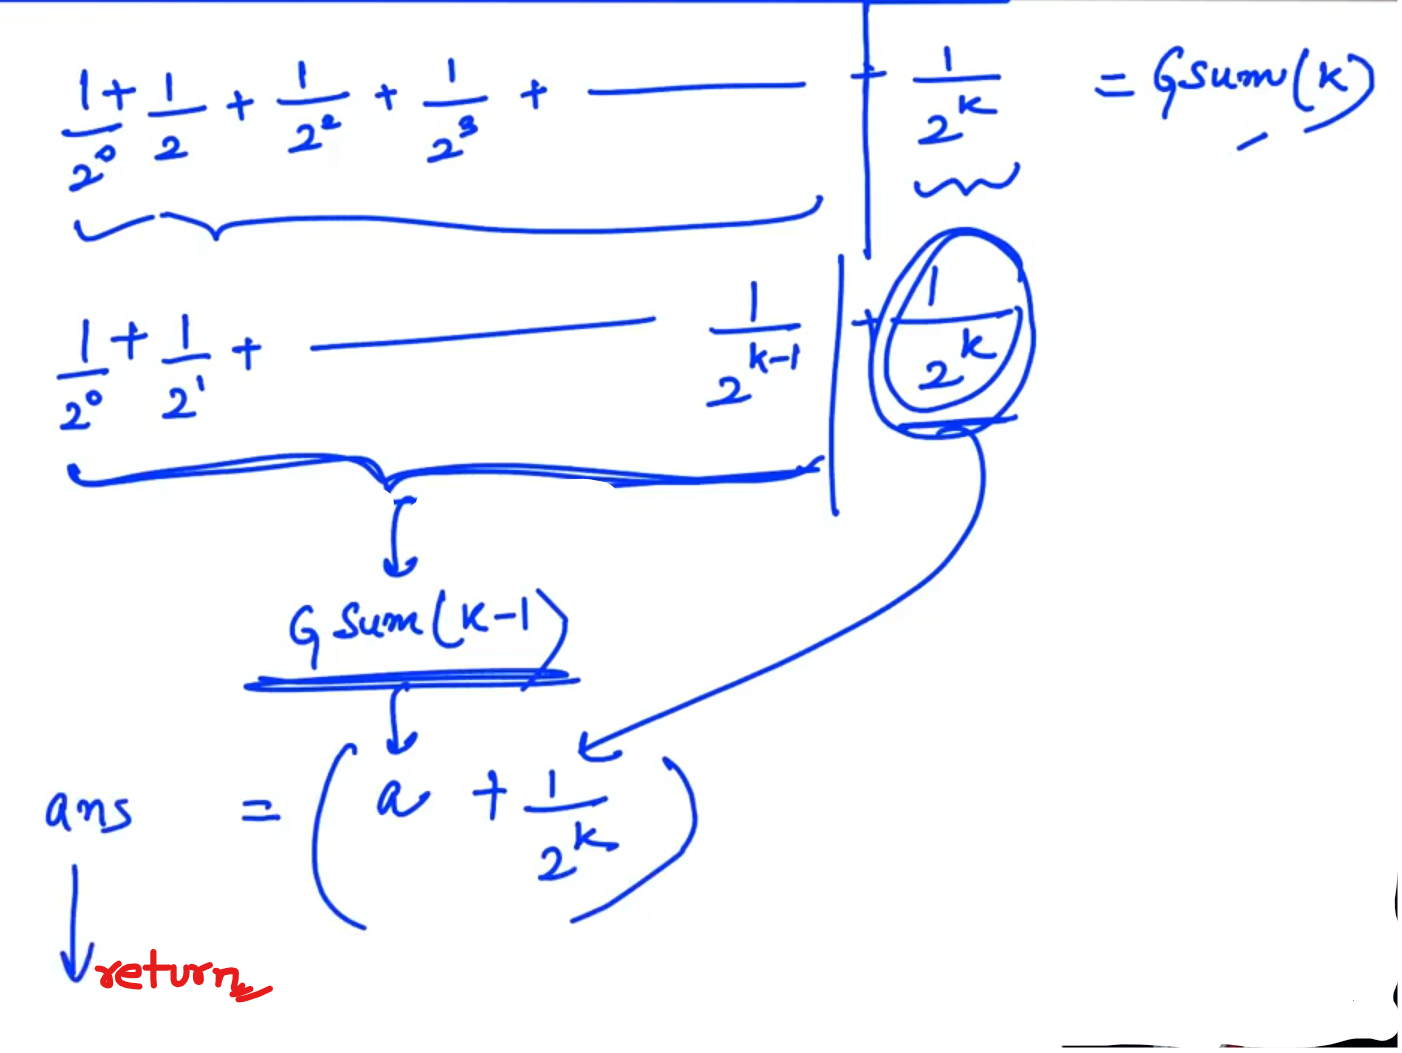 1/2⁰ + 1/2 + 1/2² + 1/2³ + ——— + 1/2ᵏ = Gsum(k)
1/2⁰ + 1/2¹ + ——— 1/2ᵏ⁻¹ + 1/2ᵏ
Gsum(k-1)
ans = (a + 1/2ᵏ)
return